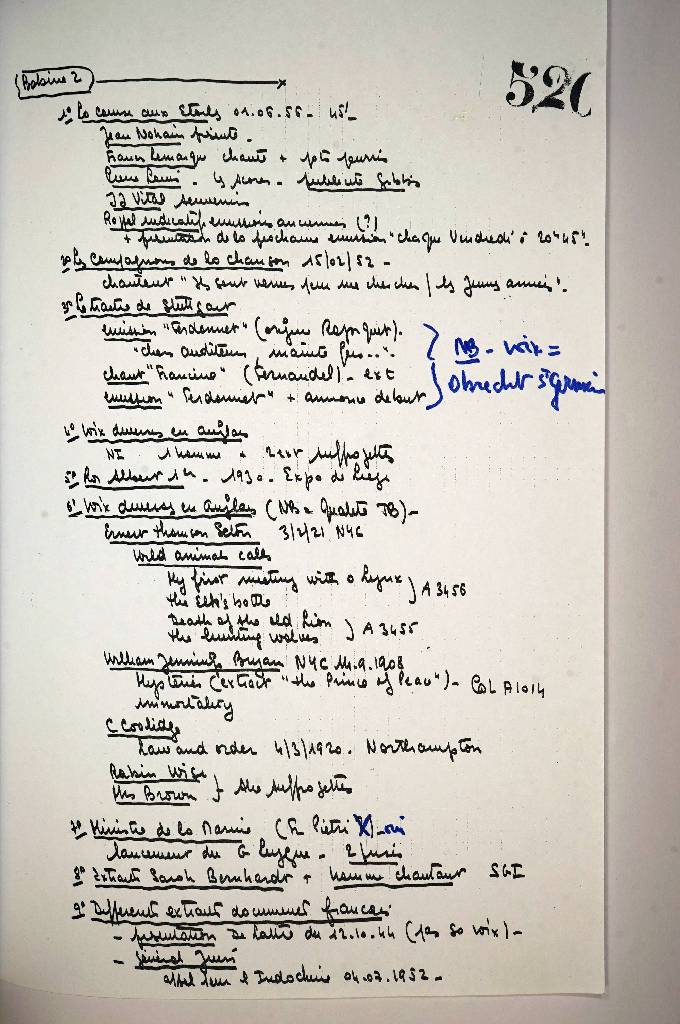 Bobine 2
520
1° La course aux Etoiles 01.06.55 - 45'
Jean Nohain présente.
Francis Lemarque chante + pots pourris
Pierre Louis . les scores - publicité Gibbs
JJ Vital souvenirs
Rappel indicatifs émissions anciennes (?)
+ présentation de la prochaine émission "chaque Vendredi à 20h45".
2° Les Compagnons de la chanson 15/02/52 -
chantent "Ils sont venus pour me chercher / les jeunes années".
3° Le traitre de Stuttgart
émission "Ferdonnet" (origine Radio
"chers auditeurs, mainte fois..".
chant "Francine" (Fernandel) - ext
émission "Ferdonnet" + annonce début
NB - voix =
Obrecht St Germain
4° Voix diverses en anglais
NI 1 homme + 2 ext suffragettes
5° Roi Albert 1er - 1930 - Expo de Liège
6° Voix diverses en anglais (NB = Qualité TB) -
Ernest Thomson Seton 3/2/21 NYC
Wild animals calls
My first meeting with a Lynx
the Elk's battle
A 3456
Death of the old Lion
the hunting wolves
A 3455
William Jennings Bryan NYC 14.9.1908
Mysteries (extract "the Prince of Peace") - Col A1014
immortality
C Coolidge
Law and order 4/3/1920. Northampton
Rabin Wise
Mrs Brown } the suffragettes
7° Ministre de la Marine (Fr Pietri X) - oui
lancement du G Leygue - 2 faces
8° Extraits Sarah Bernhardt + homme chantant SGI
9° Différents extraits documents français
- présentation De Lattre du 12.10.44 (pas sa voix) -
- Général Juin
appel pour l'Indochine 04.07.1952 -